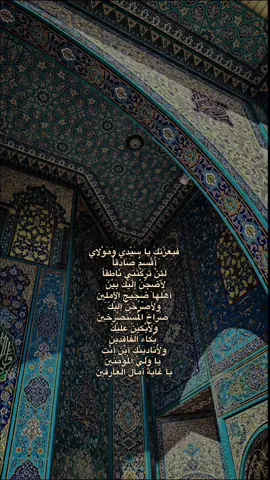 فبعزتك يا سيدي ومولاي
أقسم صادقاً
لئن تركتني ناطقاً
لأضجن إليك بين
أهلها ضجيج الآملين
ولأصرخن إليك
صراخ المستصرخين
ولأبكين عليك
بكاء الفاقدين
ولأنادينك أين أنت
يا ولي المؤمنين
يا غاية آمال العارفين